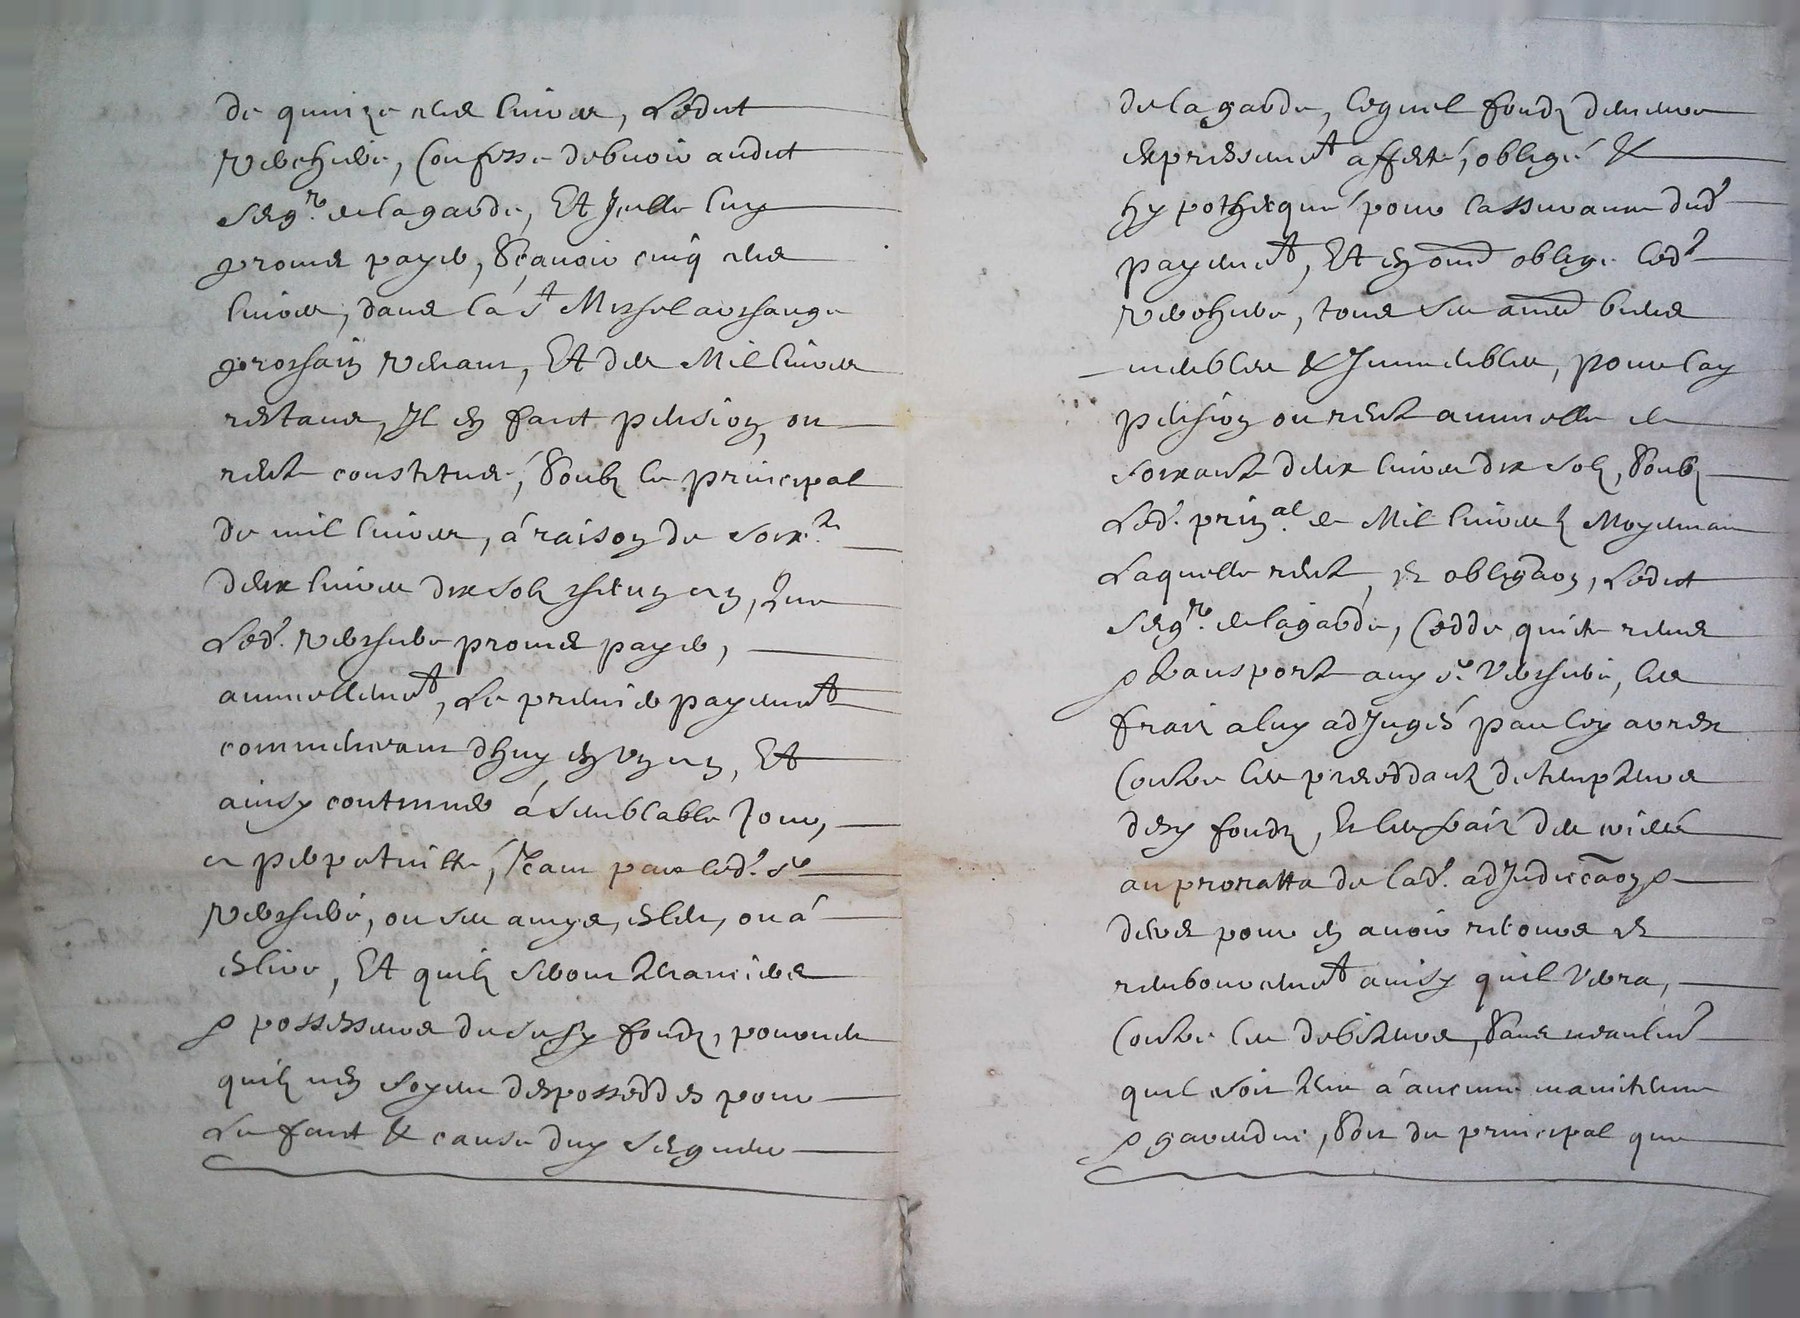 de quinze cens livres, Ledict
Verchere, Confesse debvoir audict
Seigr. de lagarde, Et Icelle luy
promet payer, Scavoir cinq cens
livres, dans la St Michel archange
prochain venant, Et des Mil livres
restans, Il en faict pension, ou
rente constituée, Soubz le principal
de mil livres, á raison de Soixte
deux livres dix Solz chacun an, Que
Led. Verchere promet payer,
annuellement, Le premier payement
commencant dhuy en Un an, Et
ainsy continuer á Semblable Jour,
a perpetuitté, tant par led. Sr
Verchere, ou Ses amys, esleu, ou á
eslire, Et quilz Seront tenanciers
& possesseurs du Susd fondz, pourveu
quilz nen Soyent desposseddes pour
Le faict & cause dud Seigneur
de lagarde, lequel fondz demeure
expressement affecté, obligé &
hypothequé pour lassurance dud
payement, Et en oultre oblige led
Verchere, tous Ses autres biens
meubles & Immeubles, pour lad
pension ou rente annuelle de
Soixante deux livres dix Solz, Soubz
Led. prinal. de Mil livres, Moyennant
Laquelle rente, et obligaon, Ledict
Seigr. de lagarde, Cedde, quitte, remet
& transporte aud Sr Verchere, les
frais a luy adJugés par led arrest
Contre les preceddantz detempteurs
desd fondz, et les fraiz des criées
au proratta de lad. adJudiccaon &
deues pour en avoir retours et
remboursement ainsy quil Verra,
Contre les debiteurs, Sans neantmoins
quil Soit tenu á aucune maintenue
& garendie, Soit du principal que